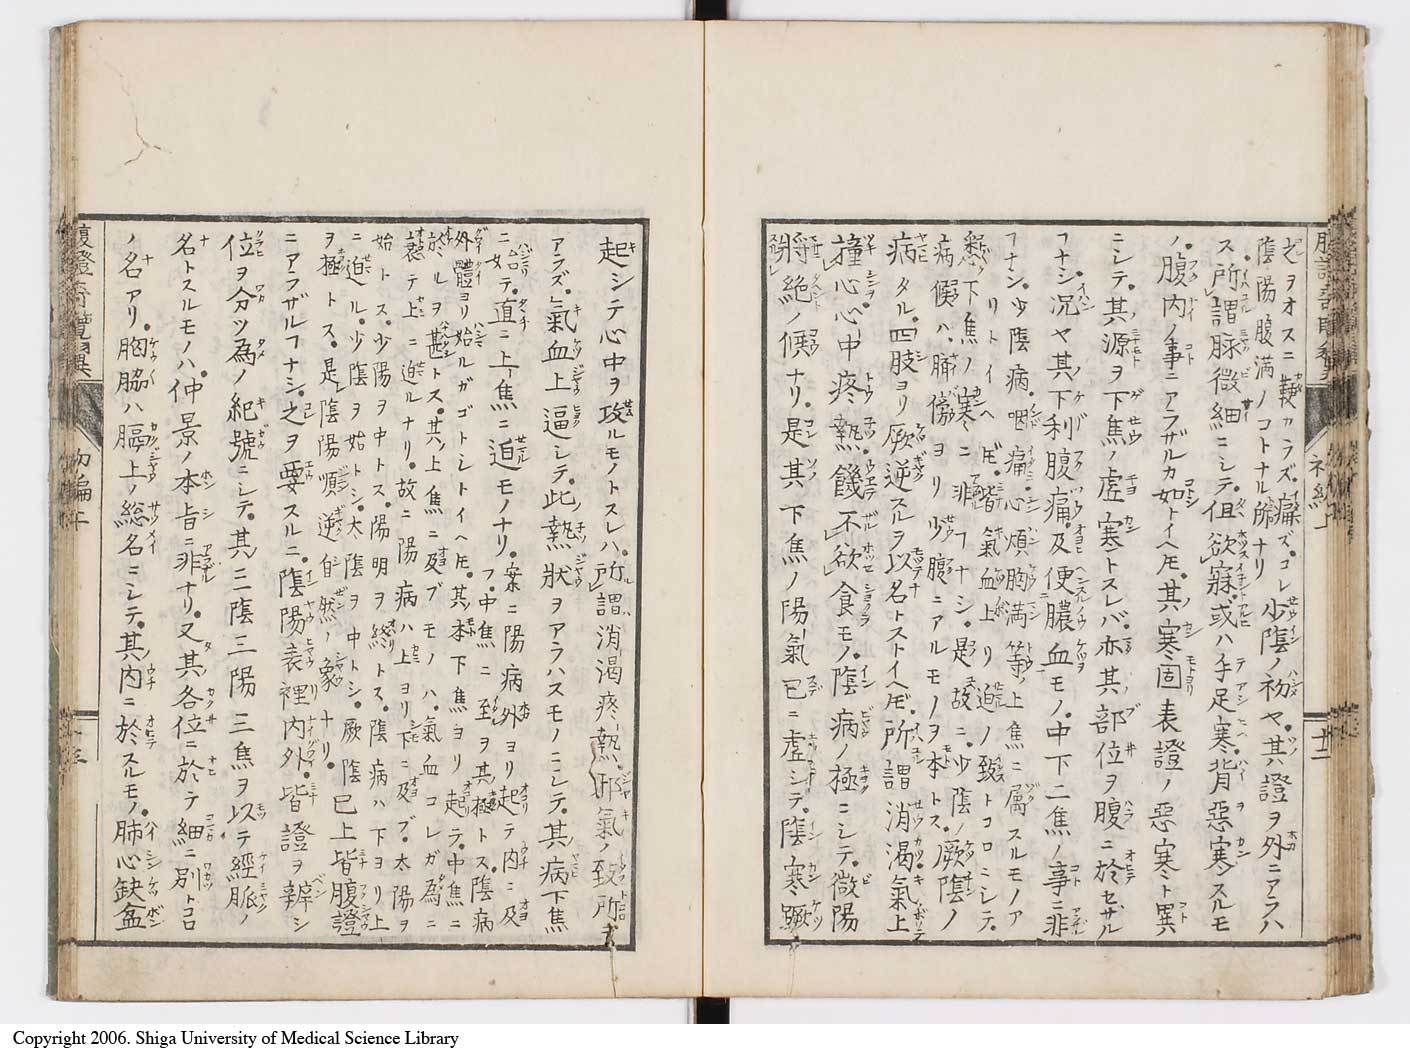 之ヲオスニ鞕カラズ痛ズコレ少陰ノ初ヤ其證ヲ外ニアラハ
陰陽腹満ノコトナル所ナリ
ス所謂脉微細ニシテ但欲寐或ハ手足寒背惡寒スルモ
ノ腹内ノ事ニアラザルカ如トイヘ𪜈其寒固表證ノ惡寒ト異
ニシテ其源ヲ下焦ノ虚寒トスレバ亦其部位ヲ腹ニ於セザル
ヿナシ沉ヤ其下利腹痛及便膿血モノ中下二焦ノ事ニ非
ヿナシ少陰病咽痛心煩胸満等ノ上焦ニ属スルモノア
リトイヘ𪜈皆氣血上リ迫ノ致トコロニシテ
下焦ノ寒ニ非ヿナシ是故ニ少陰ノ厥陰ノ
病候ハ臍傍ヨリ少腹ニアルモノヲ本トス
病タル四肢ヨリ厥逆スルヲ以名トストイヘ𪜈所謂消渇氣上
撞心心中疼熱饑不欲食モノ陰病ノ極ニシテ微陽
將絶ノ候ナリ是其下焦ノ陽氣已ニ虚シテ陰寒蹶
起シテ心中ヲ攻ルモノトスレハ所謂消渇疼熱邪氣ノ致所ニ
アラズ氣血上逼シテ此熱狀ヲアラハスモノニシテ其病下焦
ニ始テ直ニ上焦ニ迫モノナリ案ニ陽病外ヨリ起テ内ニ及
ヿ中焦ニ至ヲ其極トス陰病
外體ヨリ始ルガゴトシトイヘ𪜈其本下焦ヨリ起テ中焦ニ
於ルヲ甚トス其上焦ニ及ブモノハ氣血コレガ為ニ
衰テ上ニ迫ルナリ故ニ陽病ハ上ヨリ下ニ及ブ太陽ヲ
始トス少陽ヲ中トス陽明ヲ終トス陰病ハ下ヨリ上
ニ迫ル少陰ヲ始トシ太陰ヲ中トシ厥陰
ヲ極トス是陰陽順逆自然ノ象ナリ已上皆腹證
ニアラザルヿナシ之ヲ要スルニ陰陽表裡内外皆證ヲ辨シ
位ヲ分ツ為ノ紀號ニシテ其三陰三陽三焦ヲ以テ經脈ノ
名トスルモノハ仲景ノ本旨ニ非ナリ又其各位ニ於テ細ニ別トコロ
ノ名アリ胸脇ハ膈上ノ総名ニシテ其内ニ於スルモノ肺心缺盆
Copyright 2006. Shiga University of Medical Science Library